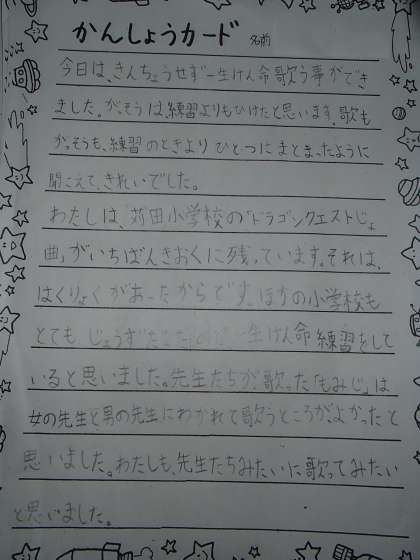 かんしょうカード 名前
今日は、きんちょうせず一生けん命歌う事ができ
ました。がっそうは、練習よりもひけたと思います。歌も
がっそうも、練習のときより ひとつにまとまったように
聞こえて、きれいでした。
わたしは、苅田小学校の「ドラゴンクエストじょ
曲」がいちばんきおくに残っています。それは、
はくりょくがあったからです。ほかの小学校も
とても じょうず 一生けん命 練習をして
いると思いました。先生たちが、歌った「もみじ」は
女の先生と男の先生にわかれて歌うところが、よかったと
思いました。わたしも、先生たちみたいに歌ってみたい
と思いました。